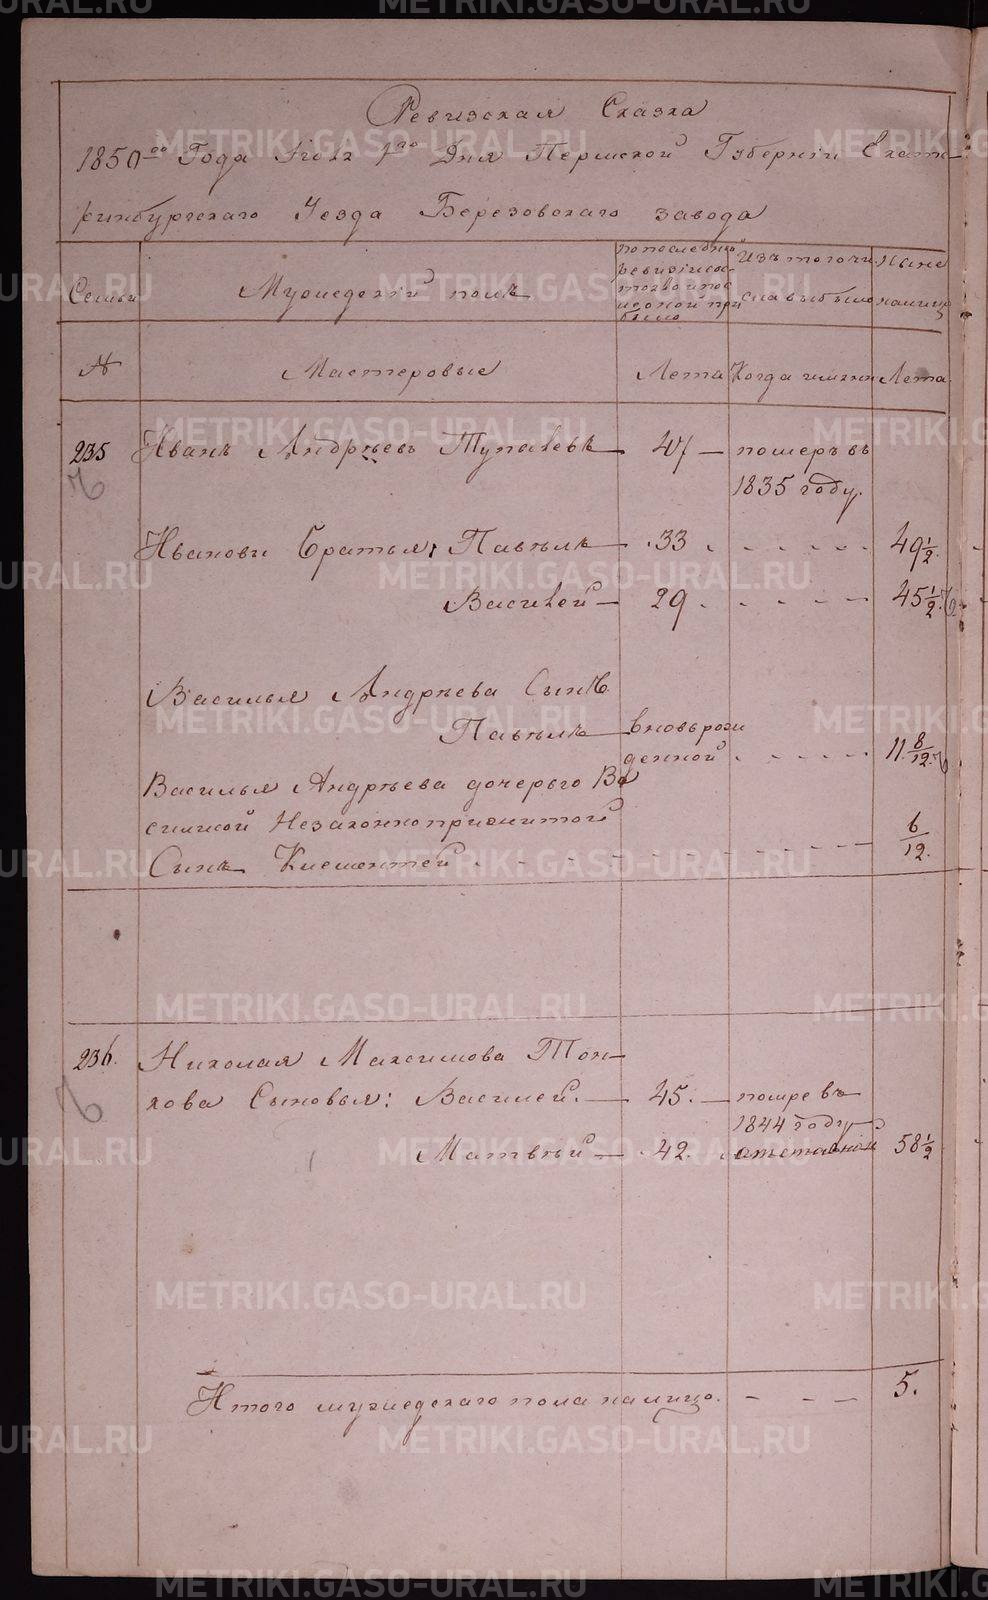 Ревизская Сказка
1850го Года Июля 1го Дня Пермской Губернiи Екате-
ринбургскаго Уезда Березовскаго завода
Семьи
Мужеский полъ
по последней
ревизiи сос-
тояло и пос
ле оной при
было
Изъ того чи
сла выбыло
Ныне
налицо
№
Мастеровые
Лета
Когда именно
Лета
235
Иванъ Андрѣевъ Тупалевъ — 47 — померъ въ
1835 году.
Ивановы братья: Павелъ — 33 49 1/2
Василей — 29 45 1/2
Василья Андрѣева Сынъ
Павелъ — вновьрож
денной 11 8/12
Василья Андрѣева дочерью Ва
силисой Незаконноприжитой
Сынъ Клементей 6/12.
236.
Николая Максимова Тон-
кова Сыновья: Василей. — 45. — помре въ
1844 году
Матвѣй — 42. отставной 58 1/2
Итого мужескаго пола налицо. — — — 5.
METRIKI.GASO-URAL.RU